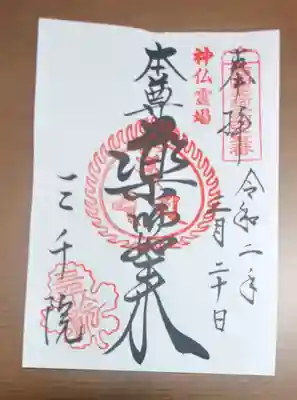 奉拝
令和二年
三月二十日
神仏霊場
本尊薬師如来
三千院